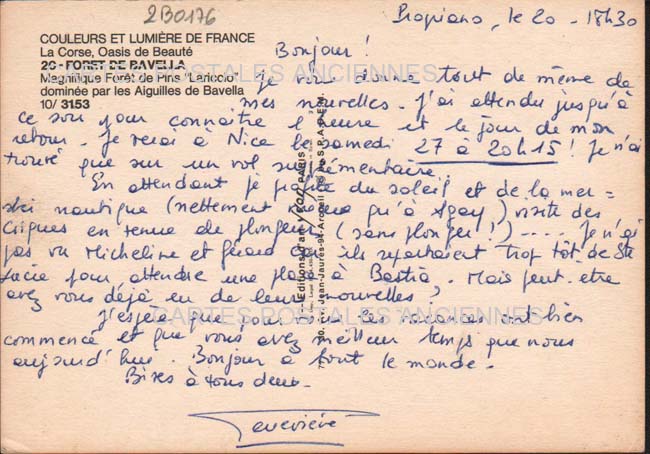 2B0176
Propriano, le 20 - 18h30
COULEURS ET LUMIÈRE DE FRANCE
La Corse, Oasis de Beauté
20 - FORET DE BAVELLA
Magnifique Forêt de Pins "Lariccio"
dominée par les Aiguilles de Bavella
10/ 3153
Bonjour !
Je vous donne tout de même de
mes nouvelles. J'ai attendu jusqu'à
ce soir pour connaître l'heure et le jour de mon
retour. Je serai à Nice le samedi 27 à 20h15 ! Je n'ai
trouvé que sur un vol supplémentaire.
En attendant je profite du soleil et de la mer =
ski nautique (nettement que qu'à Agay) visite des
criques en tenue de plongeur (sans plonger !) .... Je n'ai
pas vu Micheline et Gérard car ils repartaient trop tôt de Ste
Lucie pour attendre une place à Bastia. Mais peut-être
avez vous déjà eu de leurs nouvelles,
J'espère que pour vous les vacances ont bien
commencé et que vous avez meilleur temps que nous
aujourd'hui. Bonjour à tout le monde.
Bises à tous deux.
Geneviève
Editions d'art yvon PARIS
CARTES POSTALES ANCIENNES
CARTES POSTALES ANCIENNES